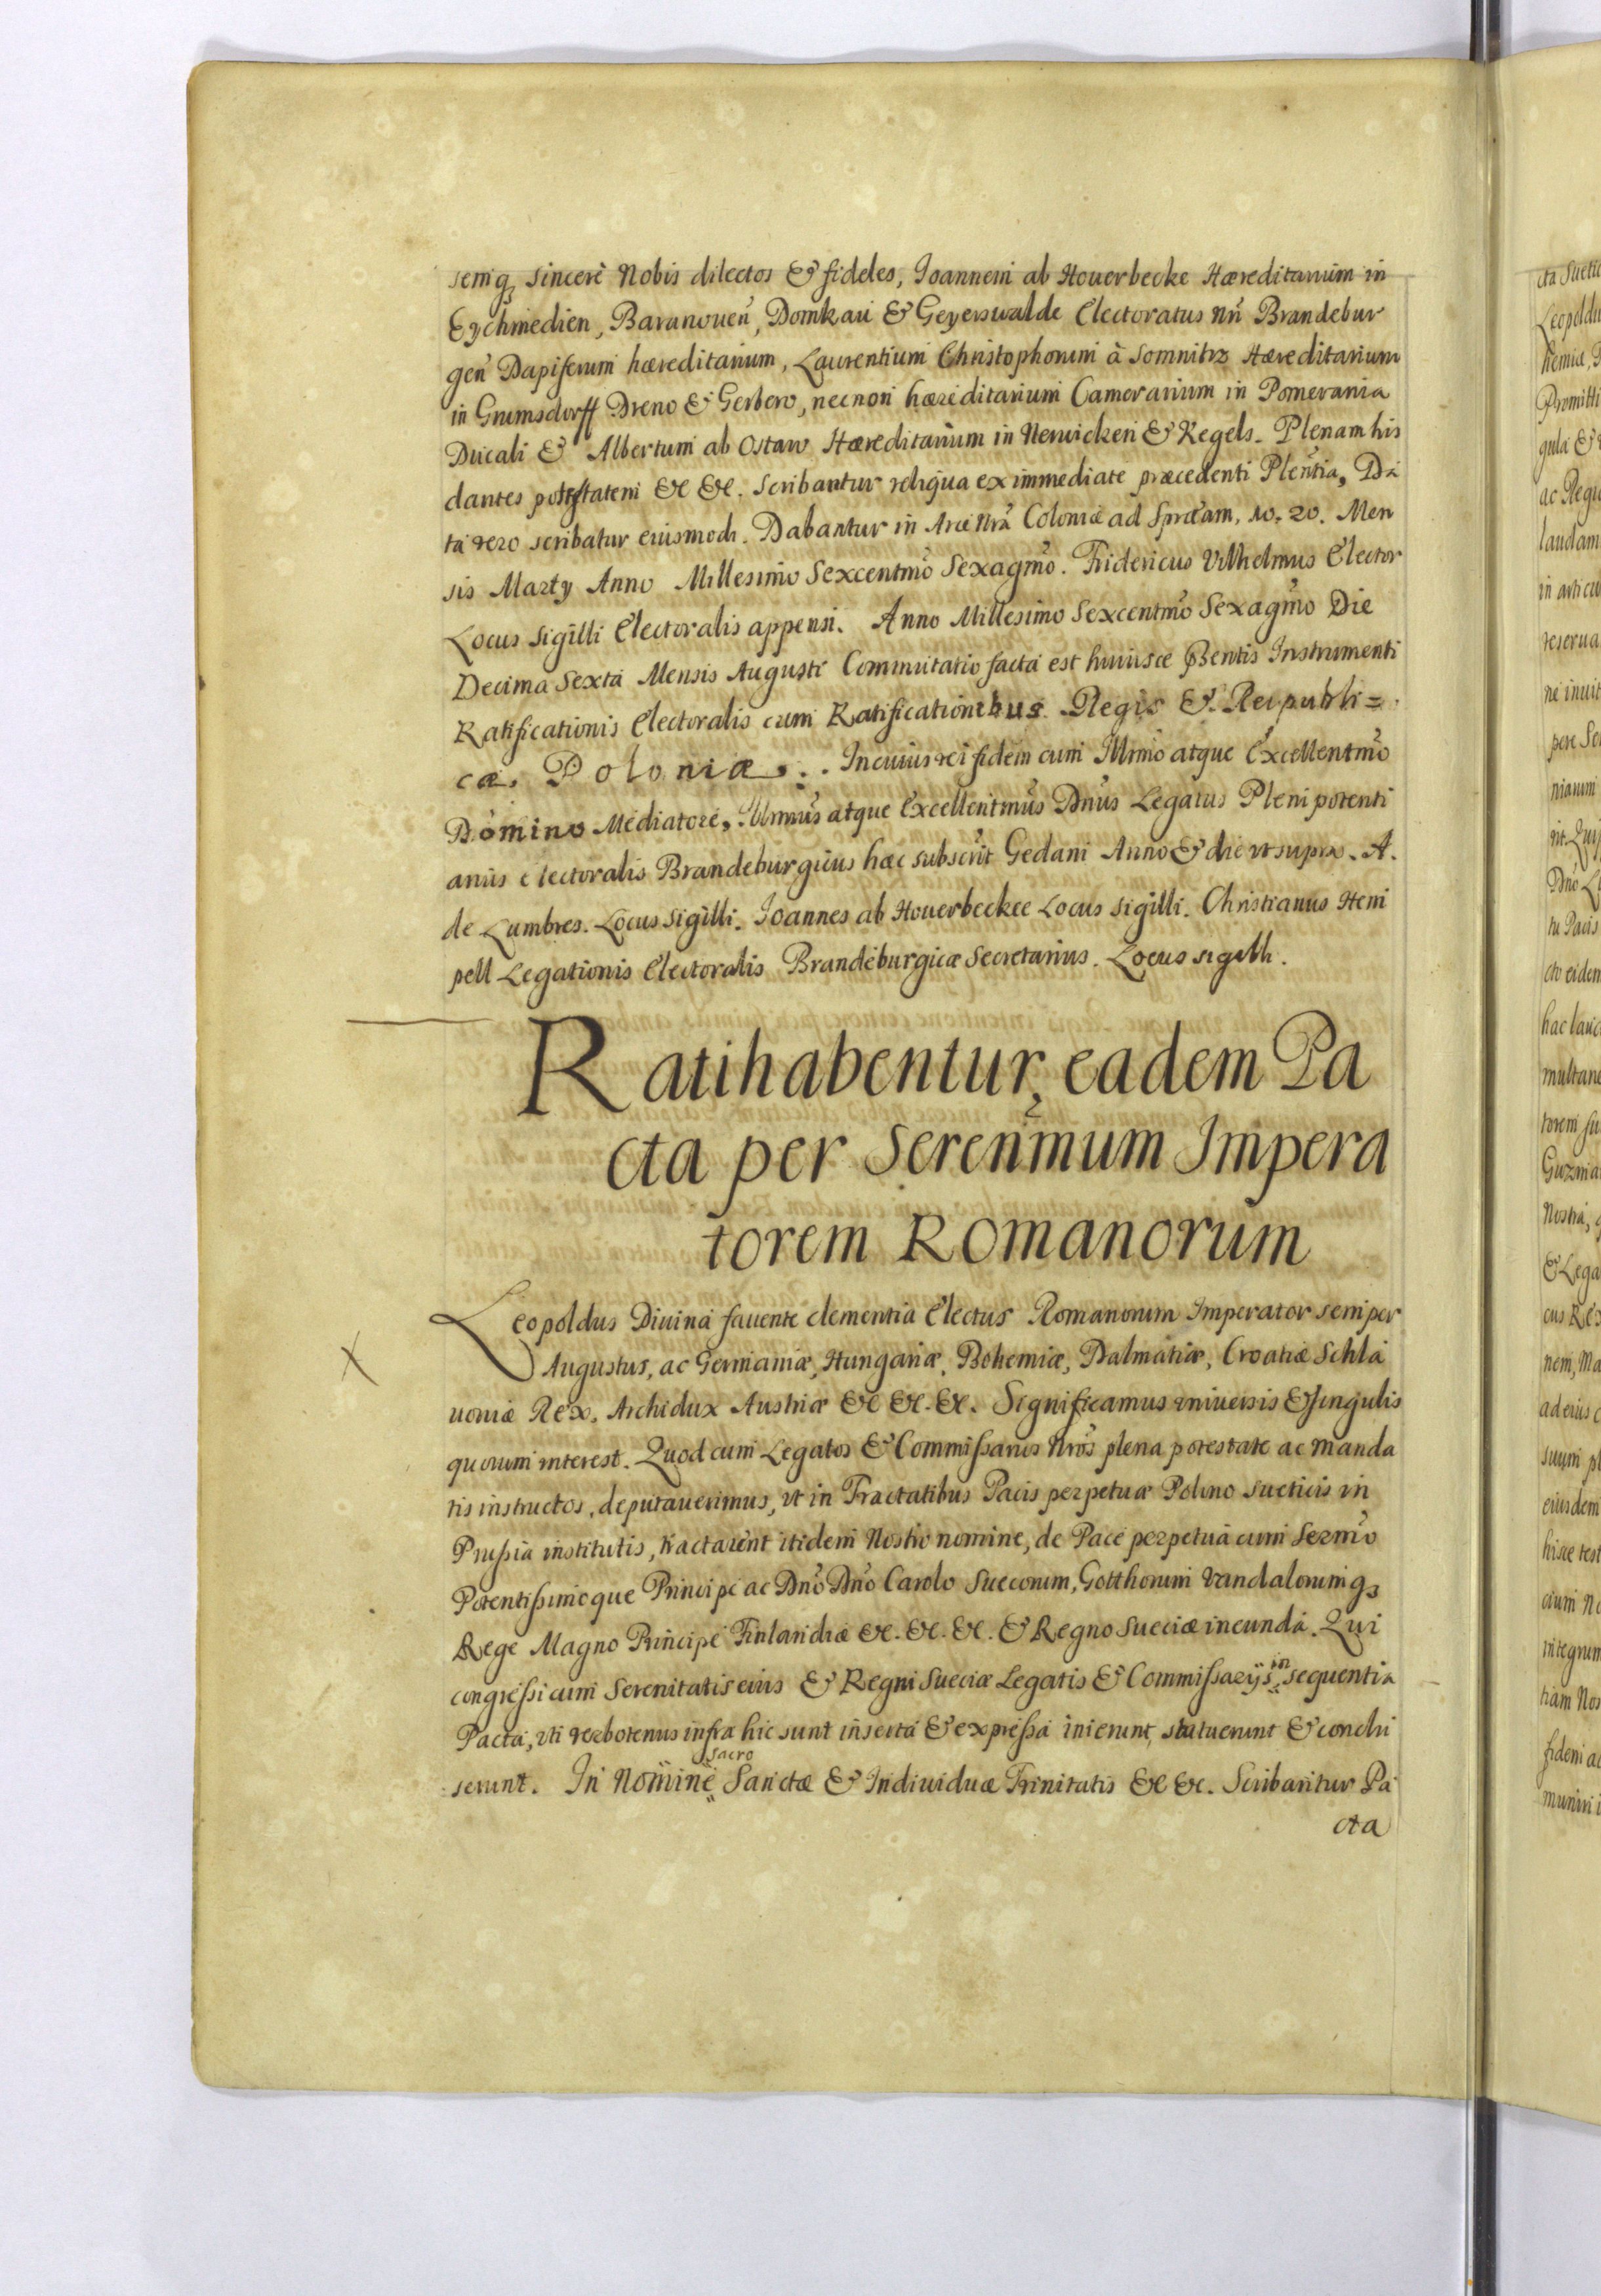 semq₃ sincerè Nobis dilectos & fideles, Joannem ab Houerbecke Hæreditarium in
Eychmedien, Baranouen̄, Domkau & Geyerswalde Electoratus nr̄i Brandebur
gen̄ Dapiferum hæreditarium, Laurentium Christophorum à Somnitz Hæreditarium
in Grumsdorff Dreno & Gerbero, necnon hæreditarium Camerarium in Pomerania
Ducali & Albertum ab Ostaw Hæreditarium in Nerwicken & Regels. Plenam his
dantes potestatem &c &c. Scribantur reliqua ex immediate præcedenti Plentia, Da
ta vero scribatur eiusmodi. Dabantur in Arce Nrā Coloniæ ad Spræam, 10. 20. Men
sis Martÿ Anno Millesimo Sexcentmō Sexagmō. Fridericus Vilhelmus Elector
Locus Sigilli Electoralis appensi. Anno Millesimo Sexcentmō Sexagmō Die
Decima Sexta Mensis Augusti Commutatio facta est huiusce p̄sentis Instrumenti
Ratificationis Electoralis cum Ratificationibus Regis & Reipubli=
cæ. Poloniæ. . In cuius rei fidem cum Illmo atque Excellentmō
Domino Mediatore, Illmus atque Excellentmūs Dnūs Legatus Plenipotenti
arius electoralis Brandeburgicus hæc subscrit Gedani Anno & die vt supra. A.
de Lumbres. Locus Sigilli. Joannes ab Houerbeckee Locus Sigilli. Christianus Hem
pell Legationis Electoralis Brandeburgicæ Secretarius. Locus sigilli.
Ratihabentur, eadem Pa
cta per Seren̄mum Impera
torem Romanorum
Leopoldus Diuina fauente clementia Electus Romanorum Imperator semper
Augustus, ac Germaniæ, Hungariæ, Bohemiæ, Dalmatiæ, Croatiæ Schla
uoniæ Rex. Archidux Austriæ &c &c. &c. Significamus vniuersis & singulis
quorum interest. Quod cum Legatos & Commissarios Nrōs plena potestate ac manda
tis instructos, deputauerimus, vt in Tractatibus Pacis perpetuæ Polono Sueticis in
Prussia institutis, tractarent itidem Nostro nomine, de Pace perpetua cum Sermō
Potentissimoque Principe ac Dnō Dnō Carolo Suecorum, Gotthorum Vandalorumq₃
Rege Magno Principe Finlandiæ &c. &c. &c. & Regno Sueciæ ineunda. Qui
congressi cum Serenitatis eius & Regni Sueciæ Legatis & Commissarÿs in sequentia
Pacta, vti verbotenus infra hic sunt inserta & expressa inierunt, statuerunt & conclu
serunt. In Nomine sacro Sanctæ & Indiuiduæ Trinitatis &c &c. Scribantur Pa
cta